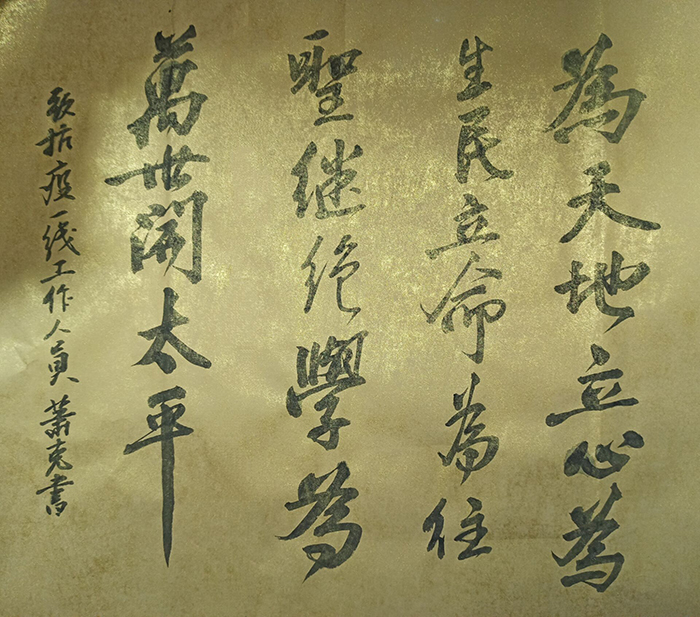 為天地立心為
生民立命為往
聖继绝學為
萬世開太平
致抗疫一线工作人員 萧克書